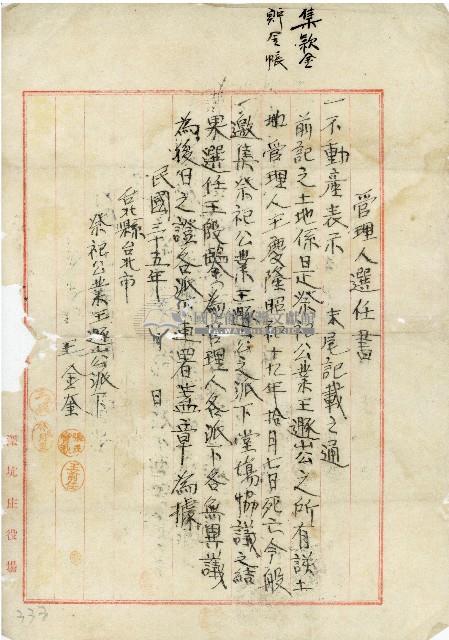 集款金
貯金帳
管理人選任書
一不動產表示 末尾記載之通
前記之土地係日是祭祀公業王䝋公之所有該土
地管理人王慶隆昭和十九年拾月七日死亡今般
一邀集祭祀公業王䝋公之派下堂塲協議之結
果選任王殷 為管理人各派下各無異議
為後日之證各派下連署蓋章為據
民國三十五年 月 日
台北縣台北市
祭祀公業王 公派下
王金奎
深坑庄役場
333